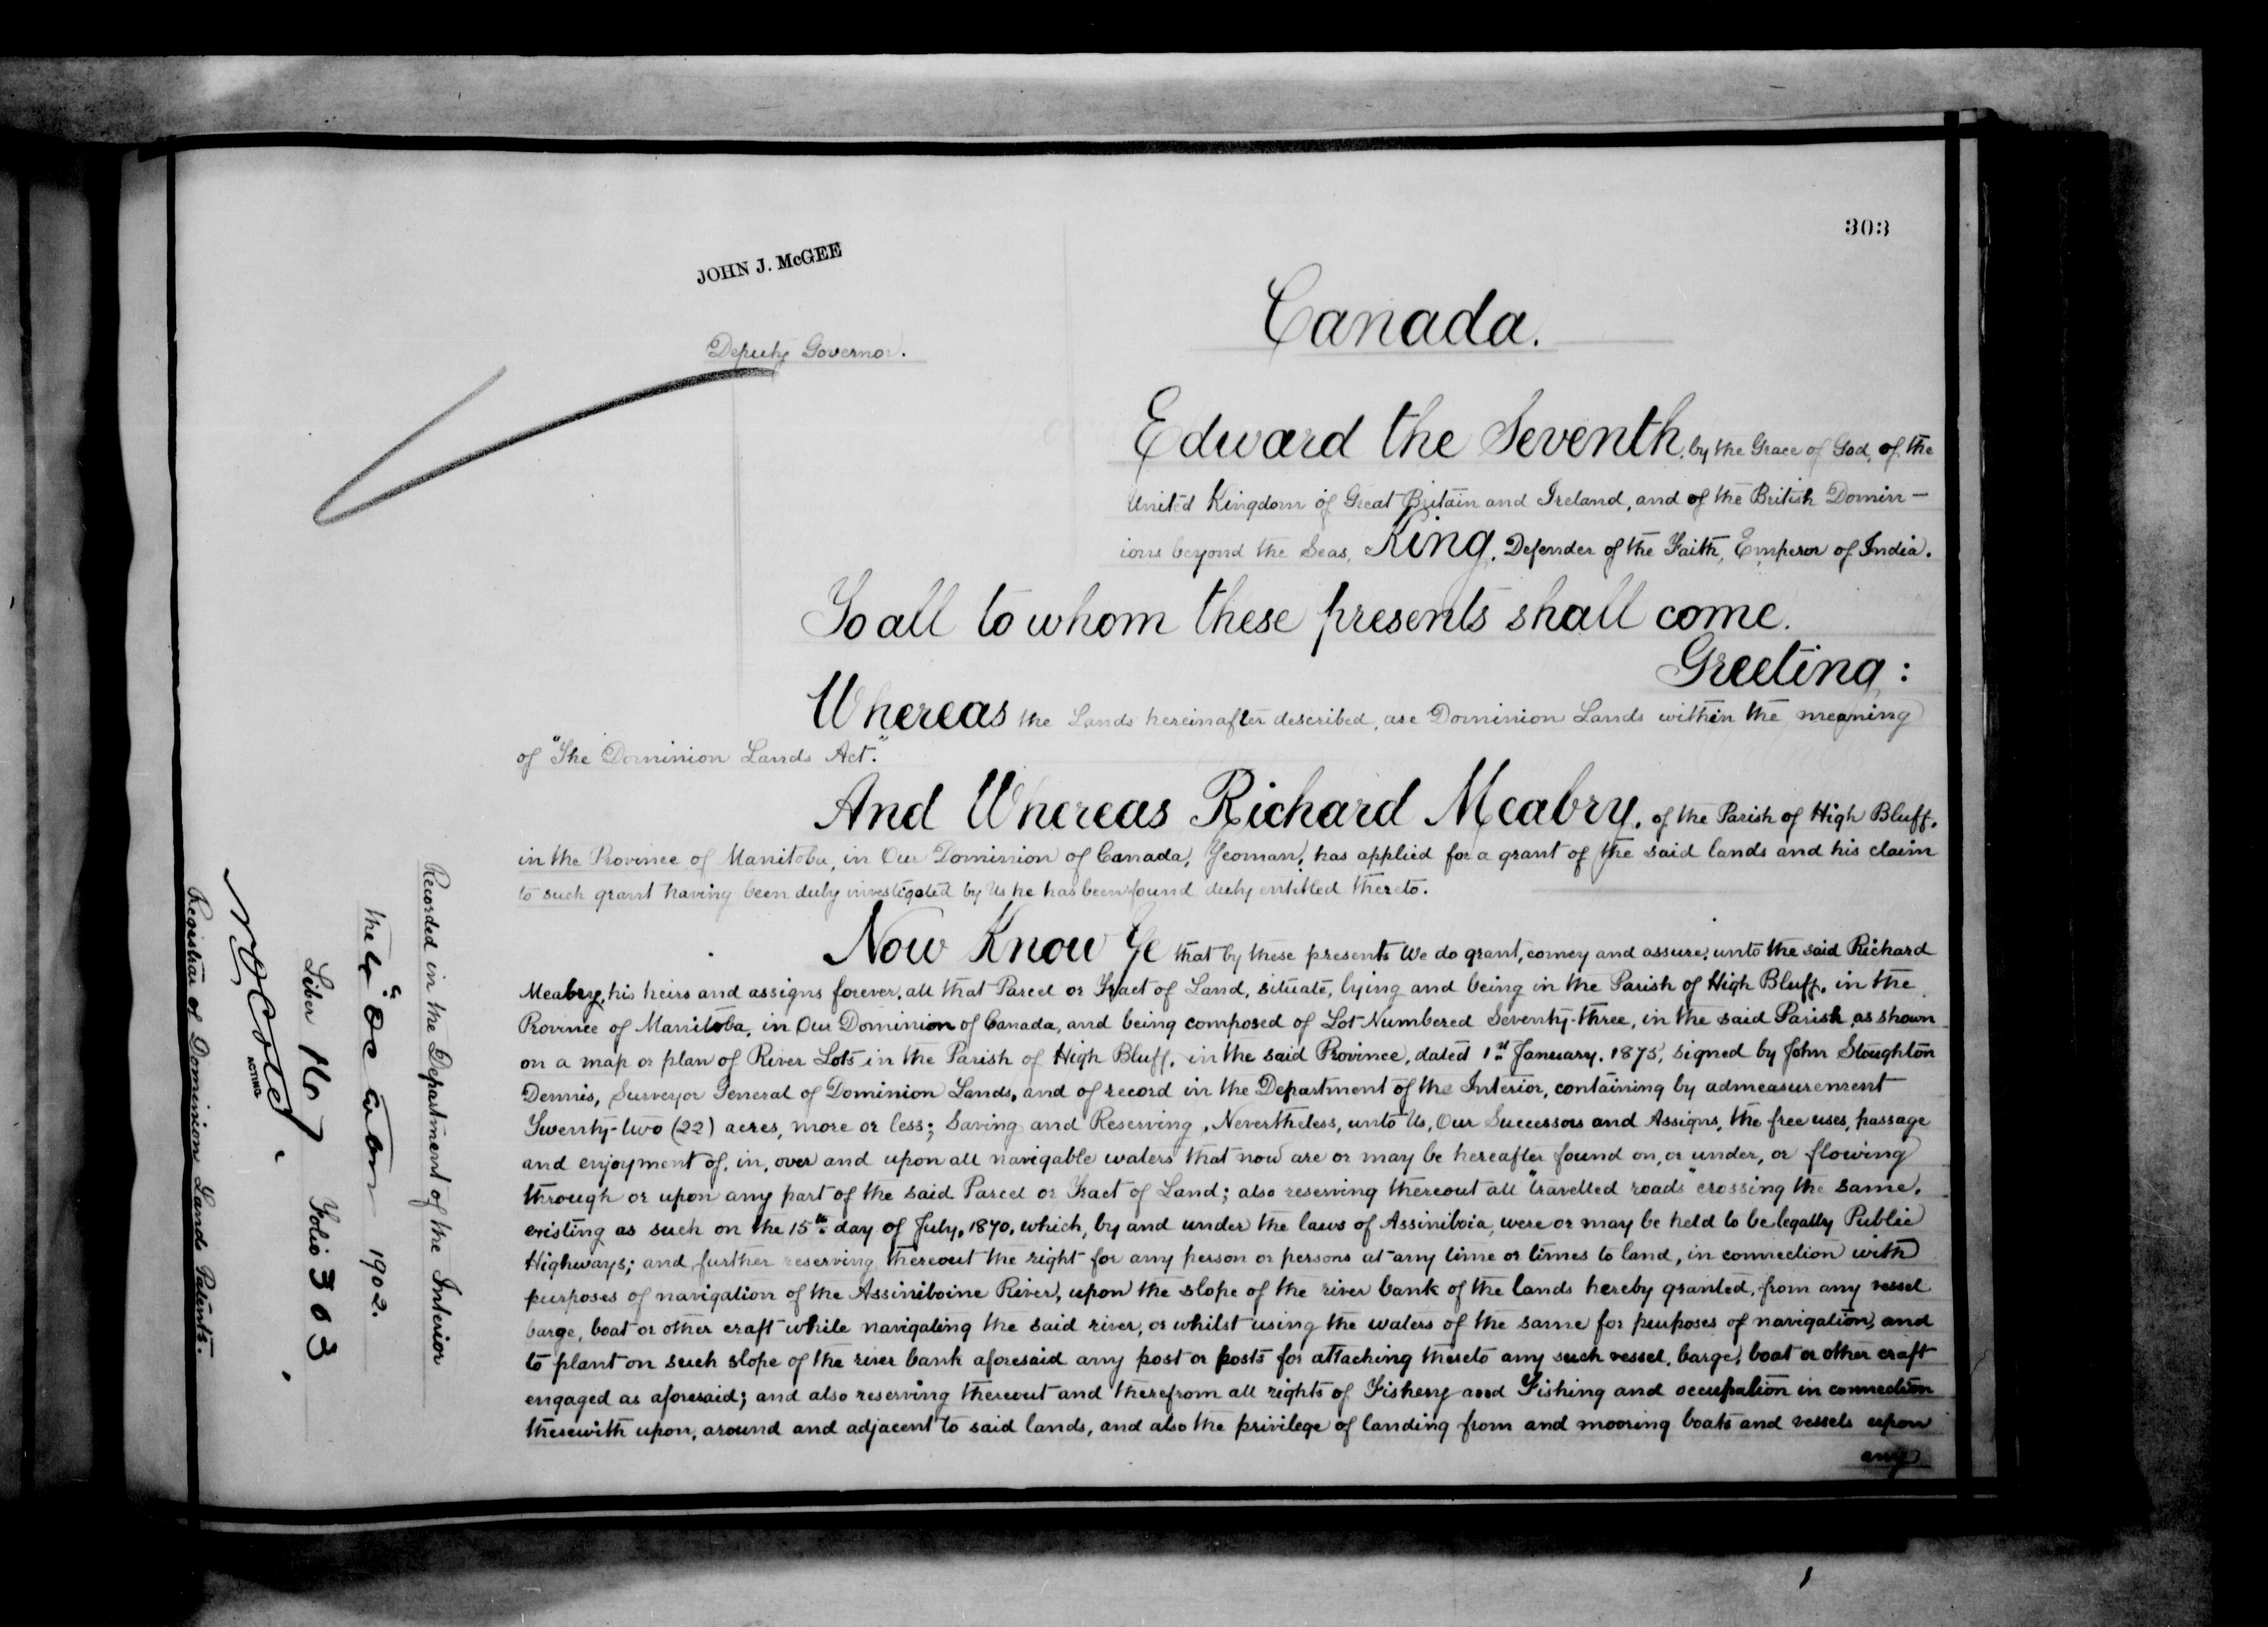 303
JOHN J. McGEE
Deputy Governor.
Canada.
Edward the Seventh, by the Grace of God, of the
United Kingdom of Great Britain and Ireland, and of the British Domin-
ions beyond the Seas, King, Defender of the Faith, Emperor of India.
To all to whom these presents shall come.
Greeting:
Whereas the Lands hereinafter described, are Dominion Lands within the meaning
of "The Dominion Lands Act."
And Whereas Richard Meabry, of the Parish of High Bluff,
in the Province of Manitoba, in Our Dominion of Canada, Yeoman, has applied for a grant of the said lands and his claim
to such grant having been duly investigated by Us he has been found duly entitled thereto.
Now Know Ye that by these presents We do grant, convey and assure, unto the said Richard
Meabry, his heirs and assigns forever, all that Parcel or Tract of Land, situate, lying and being in the Parish of High Bluff, in the
Province of Manitoba, in Our Dominion of Canada, and being composed of Lot Numbered Seventy-three, in the said Parish, as shown
on a map or plan of River Lots in the Parish of High Bluff, in the said Province, dated 1st January, 1875, signed by John Stoughton
Dennis, Surveyor General of Dominion Lands, and of record in the Department of the Interior, containing by admeasurement
Twenty-two (22) acres, more or less; Saving and Reserving, Nevertheless, unto Us, Our Successors and Assigns, the free uses, passage
and enjoyment of, in, over and upon all navigable waters that now are or may be hereafter found on, or under, or flowing
through or upon any part of the said Parcel or Tract of Land; also reserving thereout all "travelled roads" crossing the same,
existing as such on the 15th day of July, 1870, which, by and under the laws of Assiniboia, were or may be held to be legally Public
Highways; and further reserving thereout the right for any person or persons at any time or times to land, in connection with
purposes of navigation of the Assiniboine River, upon the slope of the river bank of the lands hereby granted, from any vessel
barge, boat or other craft while navigating the said river, or whilst using the waters of the same for purposes of navigation, and
to plant on such slope of the river bank aforesaid any post or posts for attaching thereto any such vessel, barge, boat or other craft
engaged as aforesaid; and also reserving thereout and therefrom all rights of Fishery and Fishing and occupation in connection
therewith upon, around and adjacent to said lands, and also the privilege of landing from and mooring boats and vessels upon
any
Recorded in the Department of the Interior
the 1902.
Liber 160 Folio 303
ACTING
Registrar of Dominion Lands Patents.